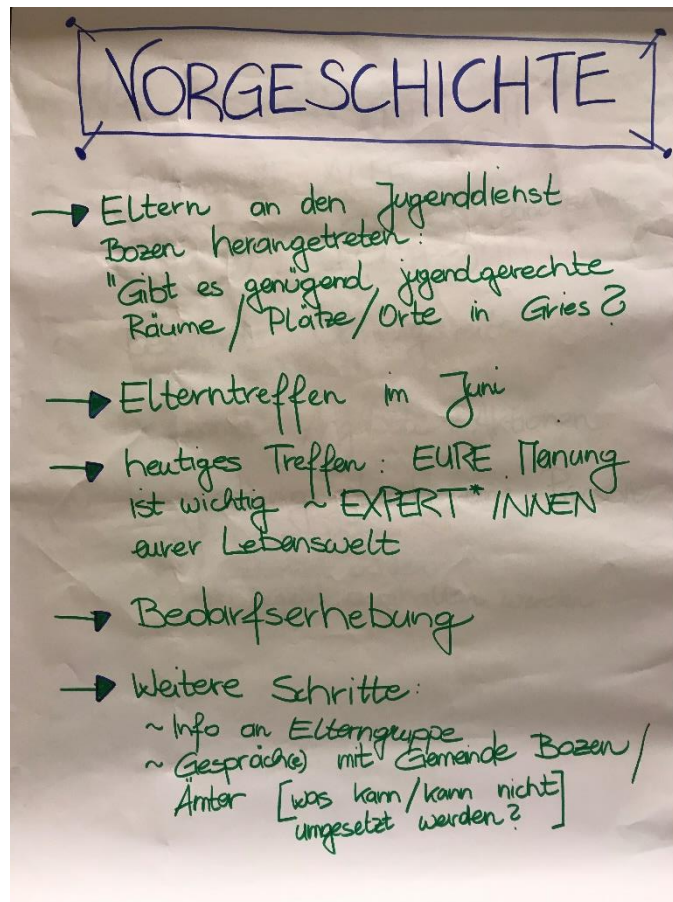 VORGESCHICHTE
→ Eltern an den Jugenddienst
Bozen herangetreten:
"Gibt es genügend, jugendgerechte
Räume/Plätze/Orte in Gries?
→ Elterntreffen im Juni
→ heutiges Treffen: EURE Meinung
ist wichtig ~ EXPERT*INNEN
eurer Lebenswelt
→ Bedarfserhebung
→ Weitere Schritte:
~ Info an Elterngruppe
~ Gespräch(e) mit Gemeinde Bozen/
Ämter [was kann/kann nicht
umgesetzt werden?]